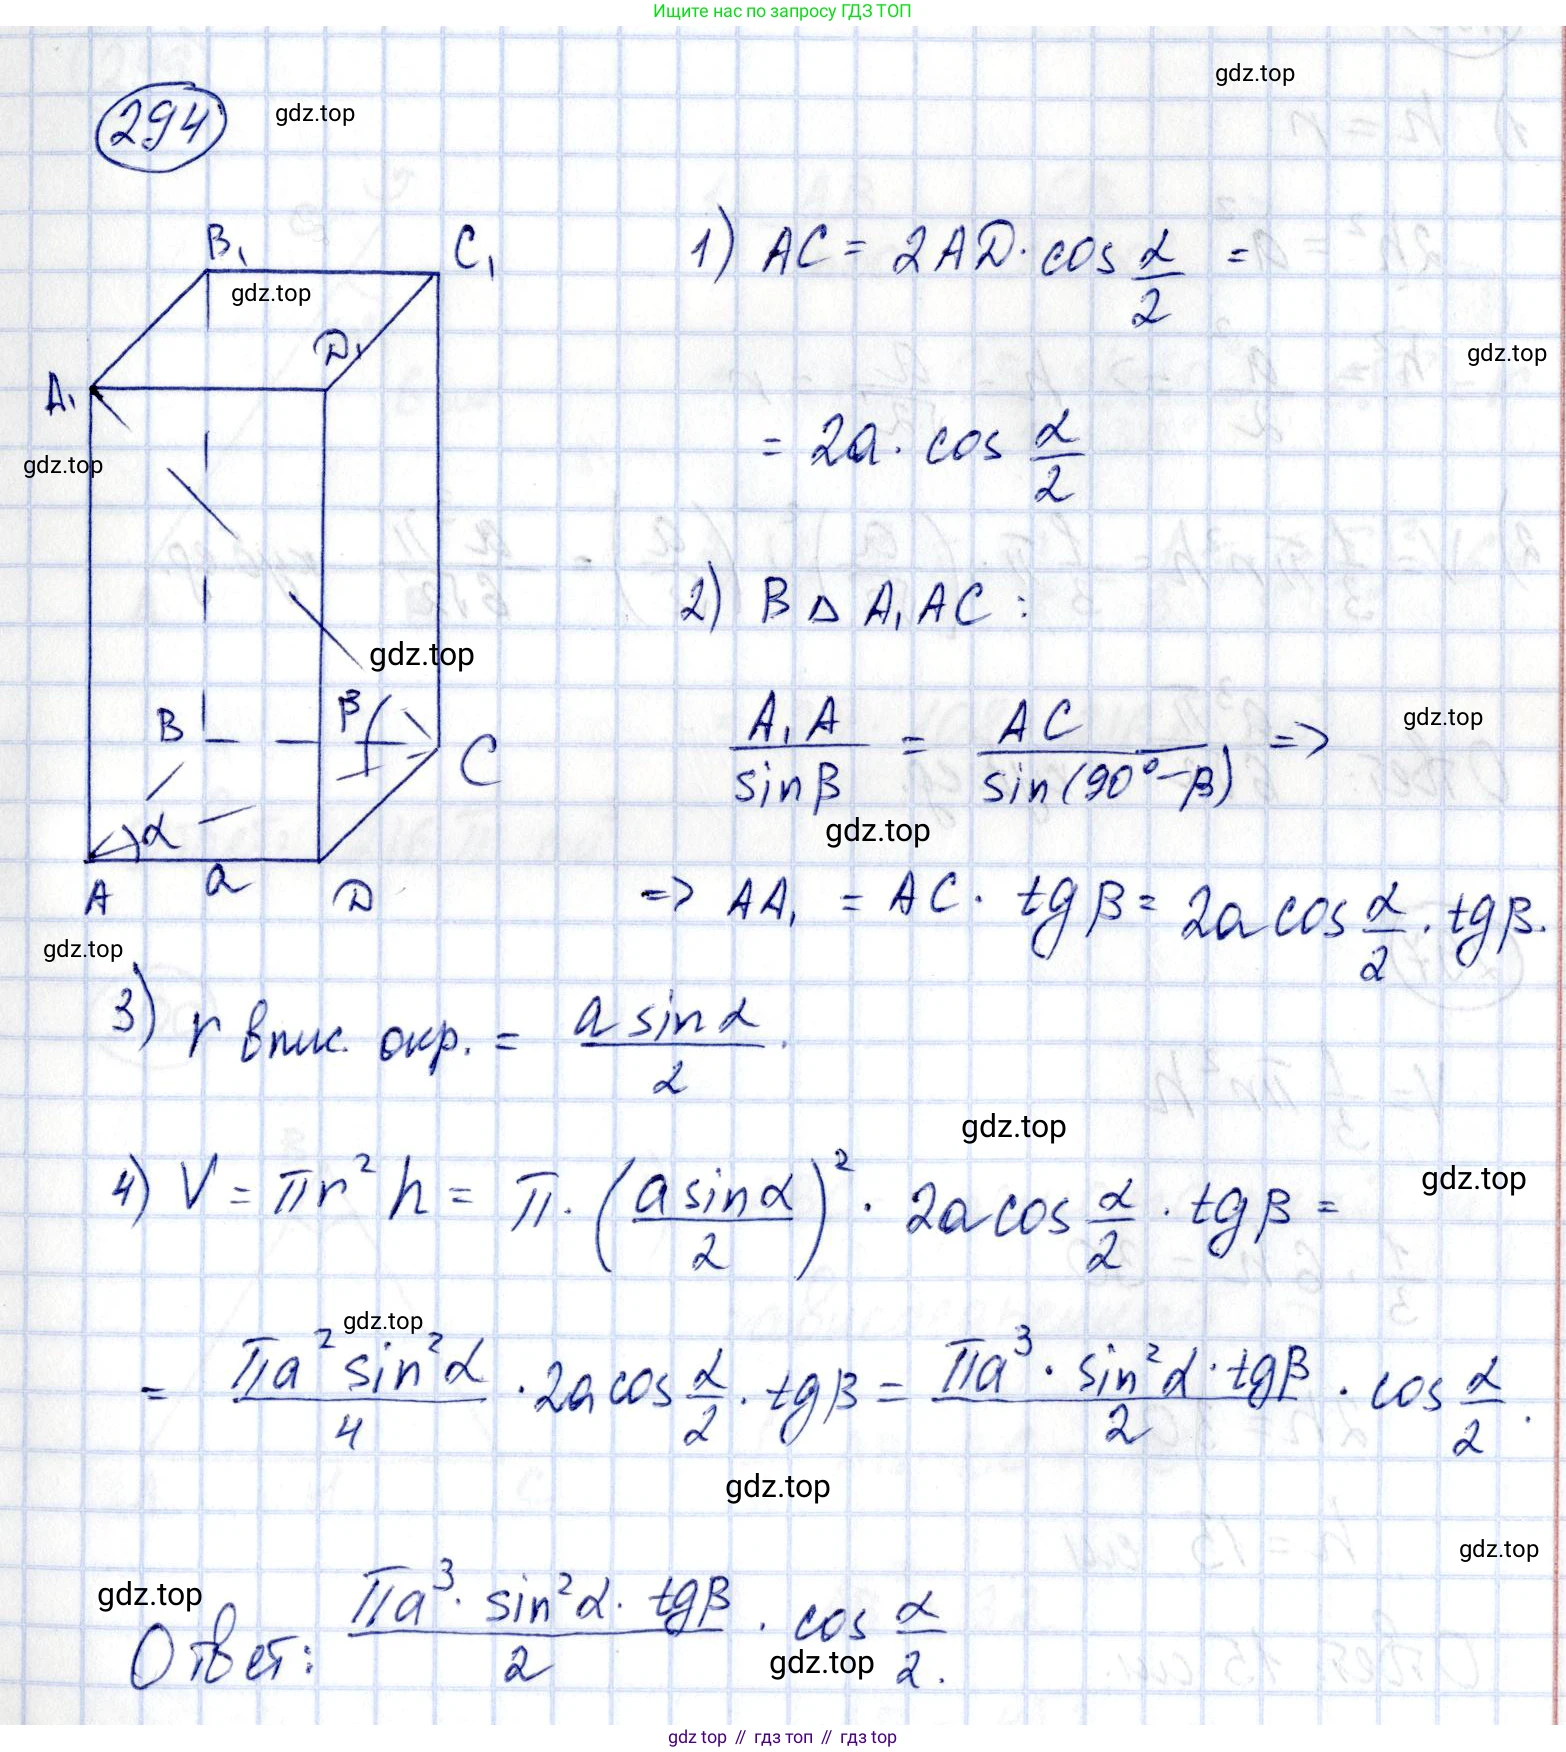 Ищите нас по запросу ГДЗ ТОП
gdz.top
294
gdz.top
B₁
C₁
gdz.top
D₁
A₁
gdz.top
gdz.top
B
β
C
α
A
a
D
gdz.top
1) AC = 2AD · cos α/2 =
gdz.top
= 2a · cos α/2
2) В △ A₁AC:
A₁A / sin β = AC / sin(90° − β) =>
gdz.top
gdz.top
=> AA₁ = AC · tg β = 2a cos α/2 · tg β.
3) r впис. окр. = a sin α / 2.
gdz.top
4) V = πr² h = π · (a sin α / 2)² · 2a cos α/2 · tg β =
gdz.top
gdz.top
= πa² sin² α / 4 · 2a cos α/2 · tg β = πa³ · sin² α · tg β / 2 · cos α/2.
gdz.top
gdz.top
gdz.top
Ответ: πa³ · sin² α · tg β / 2 · cos α/2.
gdz.top
gdz top // гдз топ // gdz top